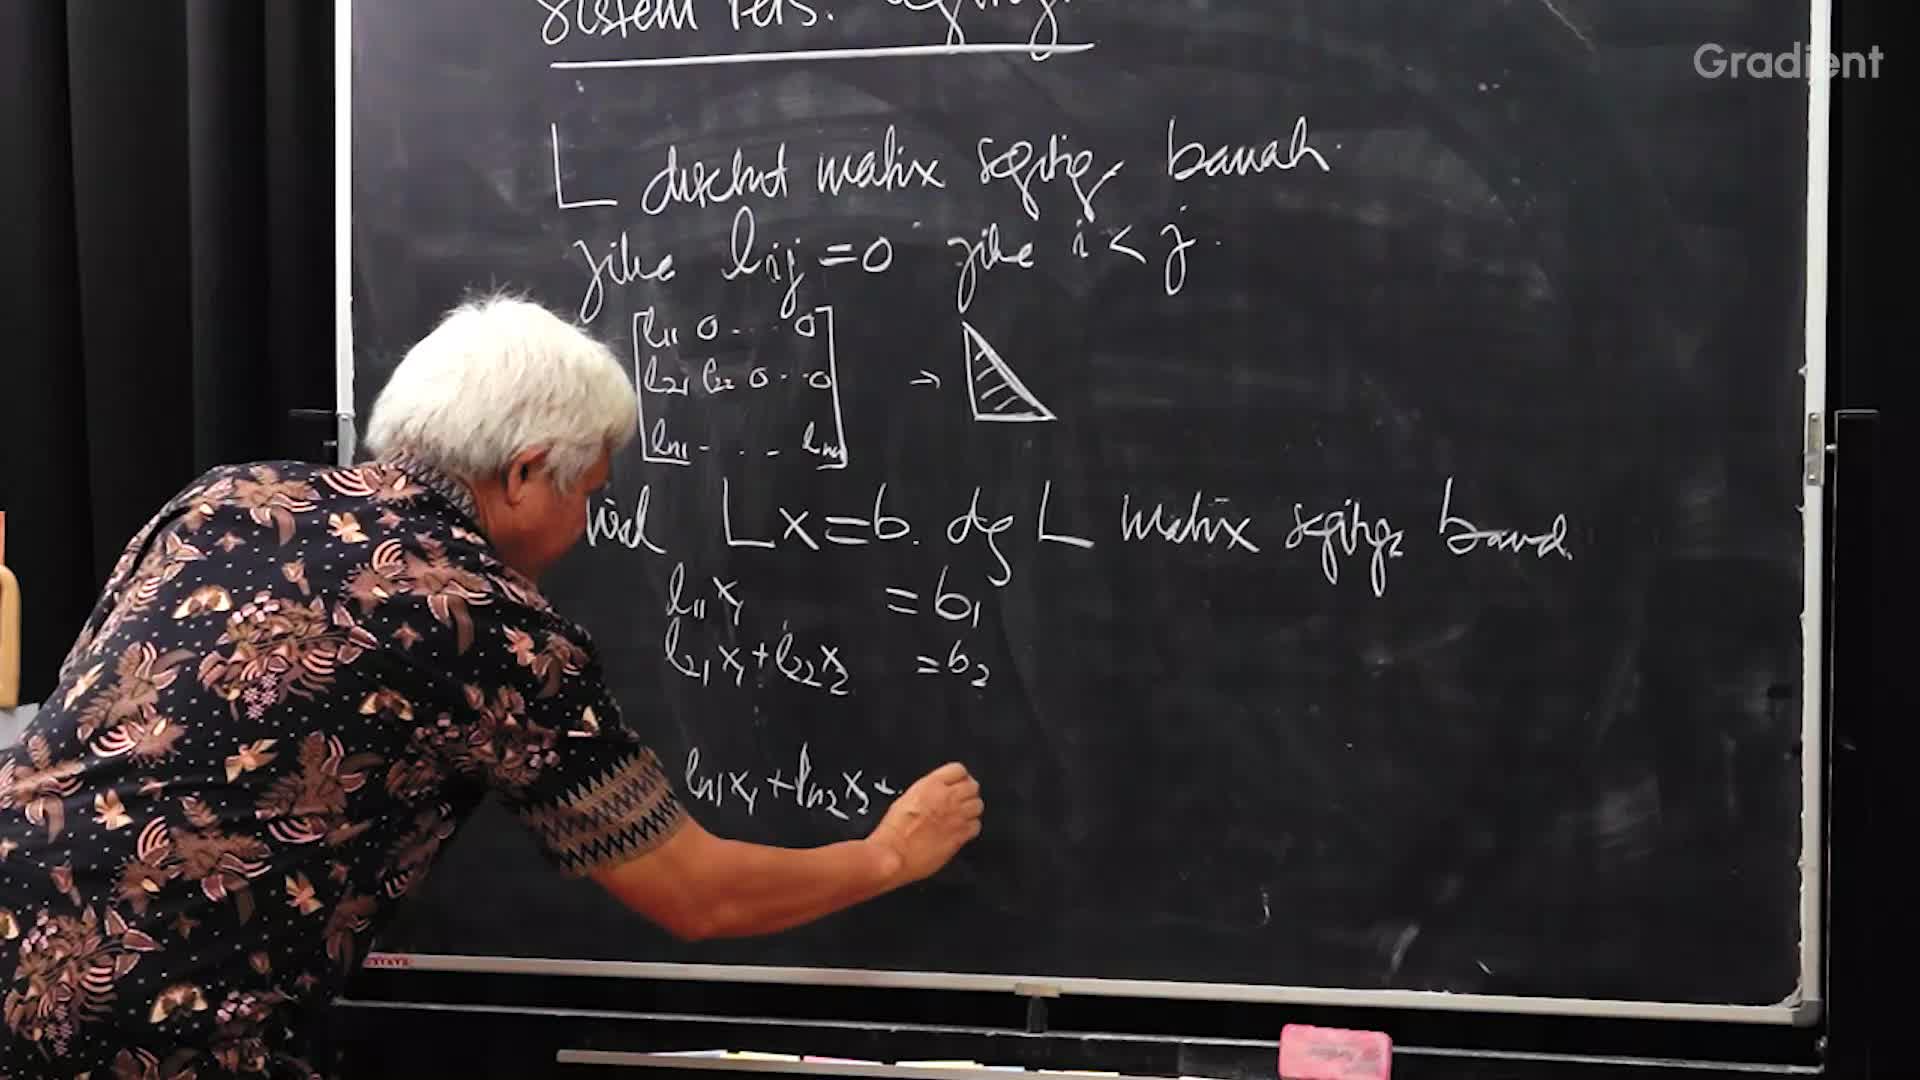 Sistem Pers.
Gradient
L disebut matrix segitiga bawah.
jika l_ij = 0 jika i < j.
l_11 0 . . . 0
l_21 l_22 0 . . 0 →
l_n1 - . . - l_nn
L x = b. dg L matrix segitiga bawah.
l_11 x_1 = b_1
l_21 x_1 + l_22 x_2 = b_2
l_n1 x_1 + l_n2 x_2 + .